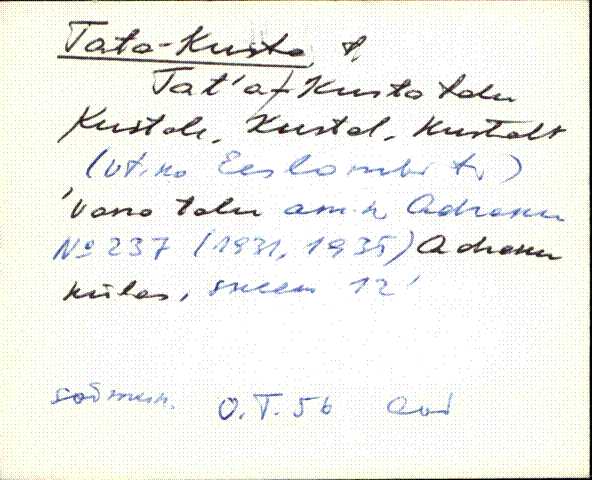 Tata-Kusta, t.
Tat'a-Kusta talu
Kustale, Kustal, Kustalt
(vt. ka Eeslombi t.)
'vana talu am.n. Adraku
№ 237 (1931, 1935) Adraku
külas, suem 12'
O.T. 56